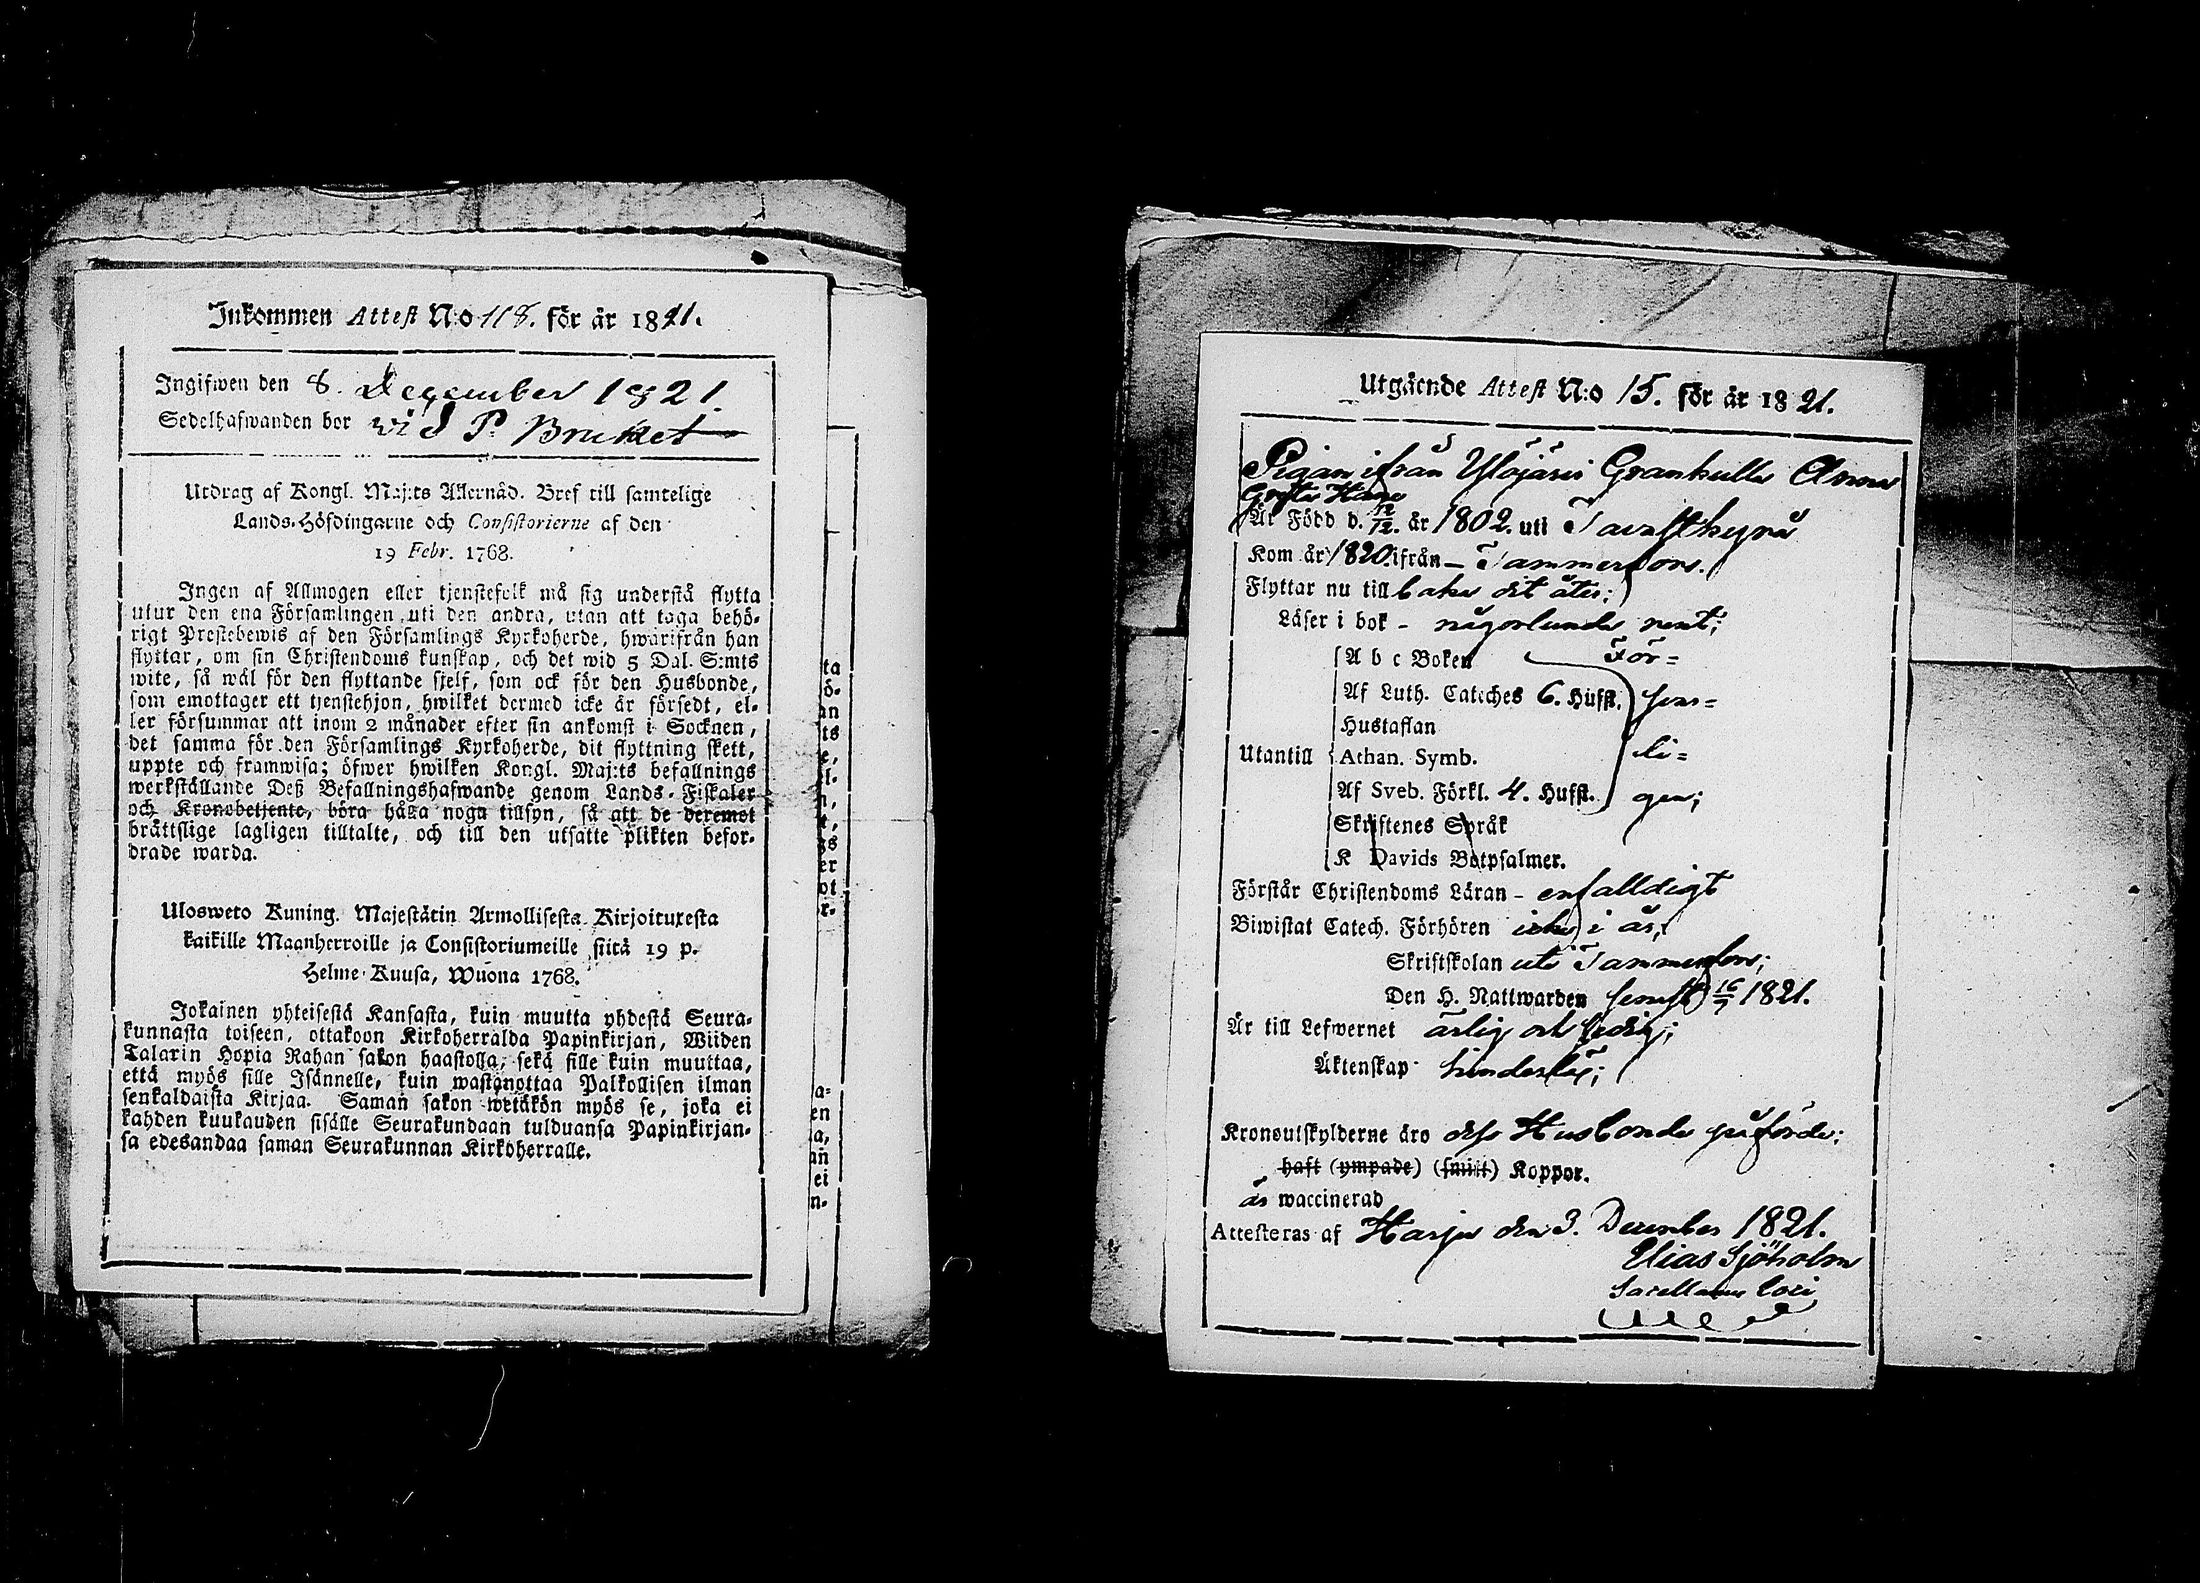 Inkommen Attest N:o 118. för år 1821.
Ingifwen den 8. December 1821.
Sedelhafwanden bor wid P. Bruket
Utdrag af Kongl. Maj:ts Allernåd. Bref till samtelige
Lands-Höfdingarne och Consistorierne af den
19 Febr. 1768.
Ingen af Allmogen eller tjenstefolk må sig understå flytta
utur den ena Församlingen uti den andra, utan att taga behö-
rigt Prestebewis af den Församlings Kyrkoherde, hwarifrån han
flyttar, om sin Christendoms kunskap, och det wid 5 Dal. S:mts
wite, så wäl för den flyttande sjelf, som ock för den Husbonde,
som emottager ett tjenstehjon, hwilket dermed icke är försedt, el-
ler försummar att inom 2 månader efter sin ankomst i Socknen,
det samma för den Församlings Kyrkoherde, dit flyttning skett,
uppte och framwisa; öfwer hwilken Kongl. Maj:ts befallnings
werkställande Deß Befallningshafwande genom Lands-Fiskaler
och Kronobetjente, böra hålla noga tillsyn, så att de deremot
brättslige lagligen tilltalte, och till den utsatte plikten befor-
drade warda.
Ulosweto Kuning. Majestätin Armollisesta Kirjoituxesta
kaikille Maanherroille ja Consistoriumeille siitä 19 p.
Helme Kuusa, Wuona 1768.
Jokainen yhteisestä Kansasta, kuin muutta yhdestä Seura-
kunnasta toiseen, ottakoon Kirkoherralda Papinkirjan, Wiiden
Talarin Hopia Rahan sakon haastolla, sekä sille kuin muuttaa,
että myös sille Isännelle, kuin wastanottaa Palkollisen ilman
senkaldaista Kirjaa. Saman sakon wetäkön myös se, joka ei
kahden kuukauden sisälle Seurakundaan tulduansa Papinkirjan-
sa edesandaa saman Seurakunnan Kirkoherralle.
ta
ö-
an
ts
e,
l-
n,
t,
gs
er
ot
r-
a-
en
a,
an
ei
n-
Utgående Attest N:o 15. för år 1821.
Pigan ifrån Ylöjärvi Grankulla Anna
Är Född d. 12/12. år 1802. uti Tavastkyrå
Kom år 1820. ifrån - Tammerfors.
Flyttar nu till baka dit åter;
Läser i bok - någorlunda rent;
A b c Boken För=
Af Luth. Cateches 6. Hufst. svar=
Hustaflan
Utantill Athan. Symb. li=
Af Sveb. Förkl. 4. Hufst. gen;
Skriftenes Språk
K Davids Botpsalmer.
Förstår Christendoms Läran - enfalldigt
Biwistat Catech. Förhören icke i år,
Skriftskolan uti Tammerfors;
Den H. Nattwarden senast 16/9 1821.
Är till Lefwernet ärlig och ledig;
Äktenskap hinderslös;
Kronoutskylderne äro dess Husbonde påförde;
haft (ympade) (smitt) Koppor.
är waccinerad
Attesteras af Harju den 3. December 1821.
Elias Sjöholm
Sacellanus loci